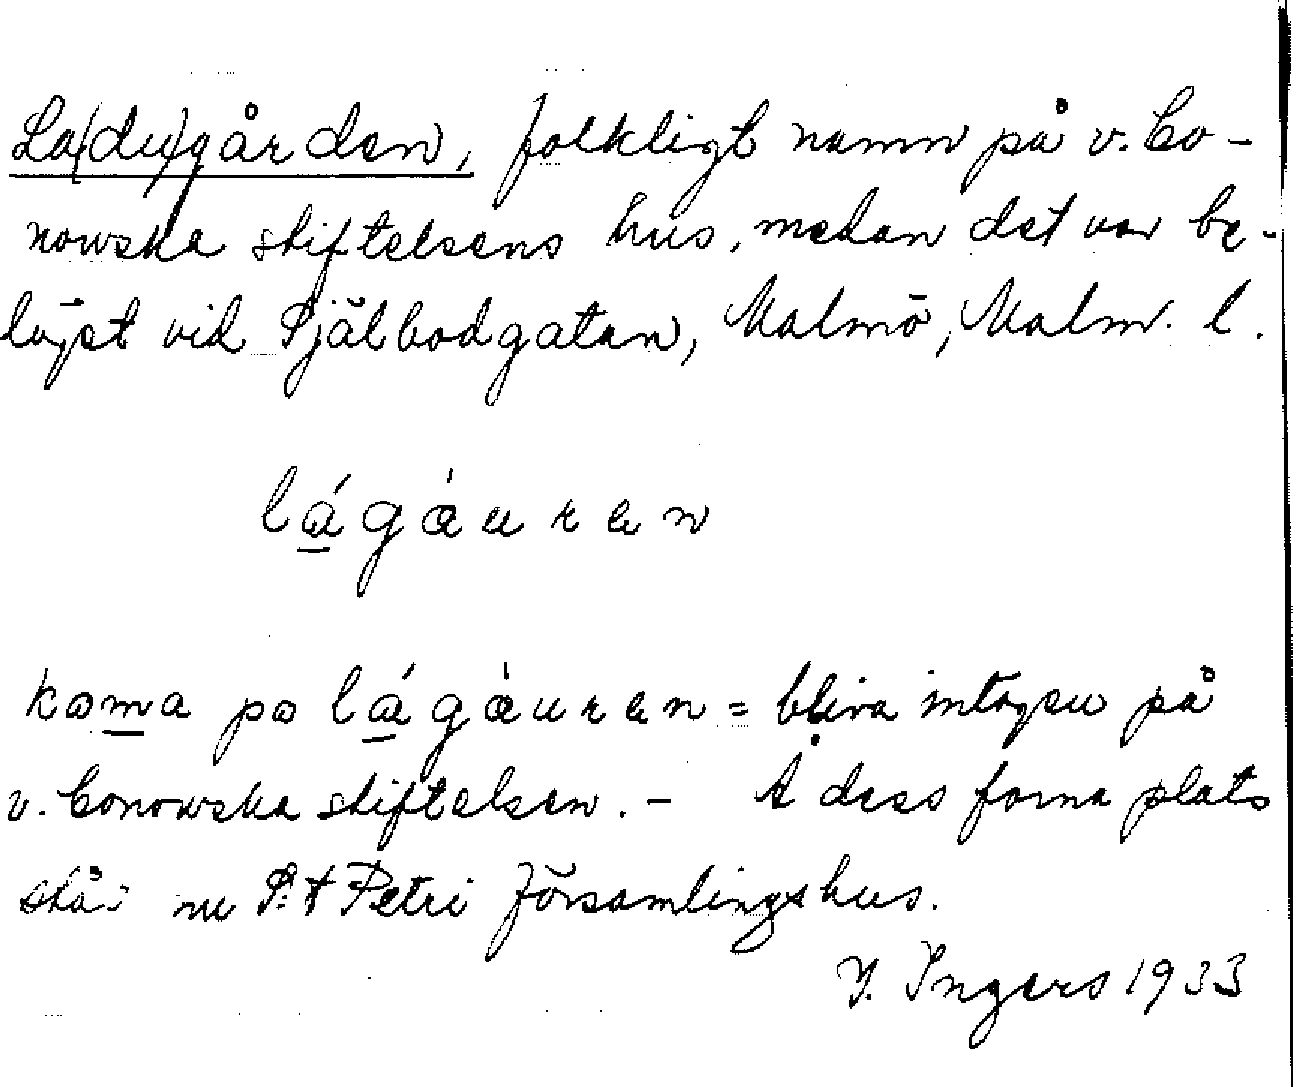 La(du)gården, folkligt namn på v. Co-
nowska stiftelsens hus, medan det var be-
läget vid Själbodgatan, Malmö, Malm. l.
lá̱gáuren
koma po lá̱gáuren = bliva intagen på
v. Conowska stiftelsen. – Å dess forna plats
står nu S:t Petri församlingshus.
I. Ingers 1933